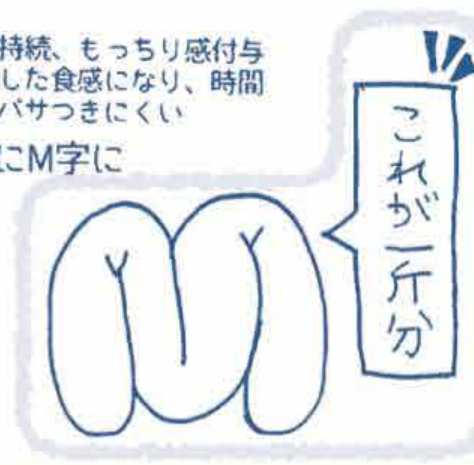 持続、もっちり感付与
した食感になり、時間
パサつきにくい
にM字に
これが一斤分